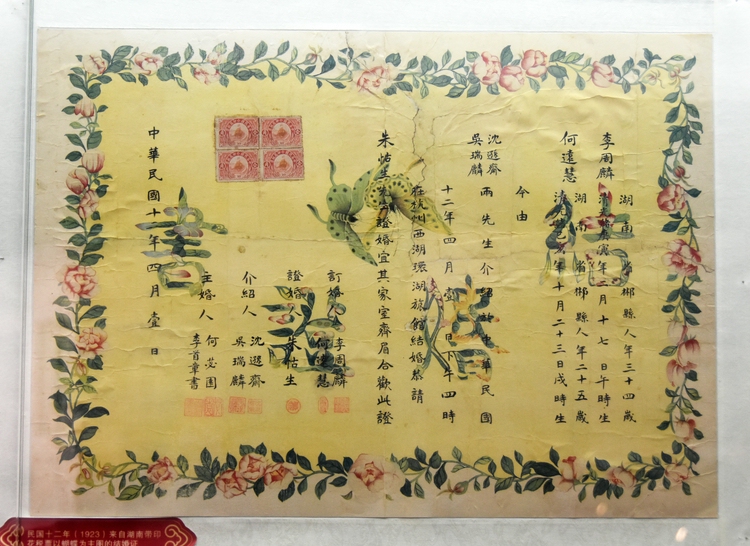 湖南省郴縣人年三十四歲
李周麟 清光緒庚寅年月十七日午時生
湖南省郴縣人年二十五歲
何遠慧 清光緒己亥年十月二十三日戌時生
今由
沈遐齋
吳瑞麟
兩先生介紹於中華民國
十二年四月壹日下午四時
在杭州西湖環湖旅館結婚恭請
朱怙生先生證婚宜其家室齊眉合歡此證
訂婚人 李周麟
何遠慧
證婚人 朱怙生
介紹人 沈遐齋
吳瑞麟
主婚人 何苾園
李首章書
中華民國十年四月壹日
證書
民国十二年（1923）来自湖南带印
花税票以蝴蝶为主图的结婚证